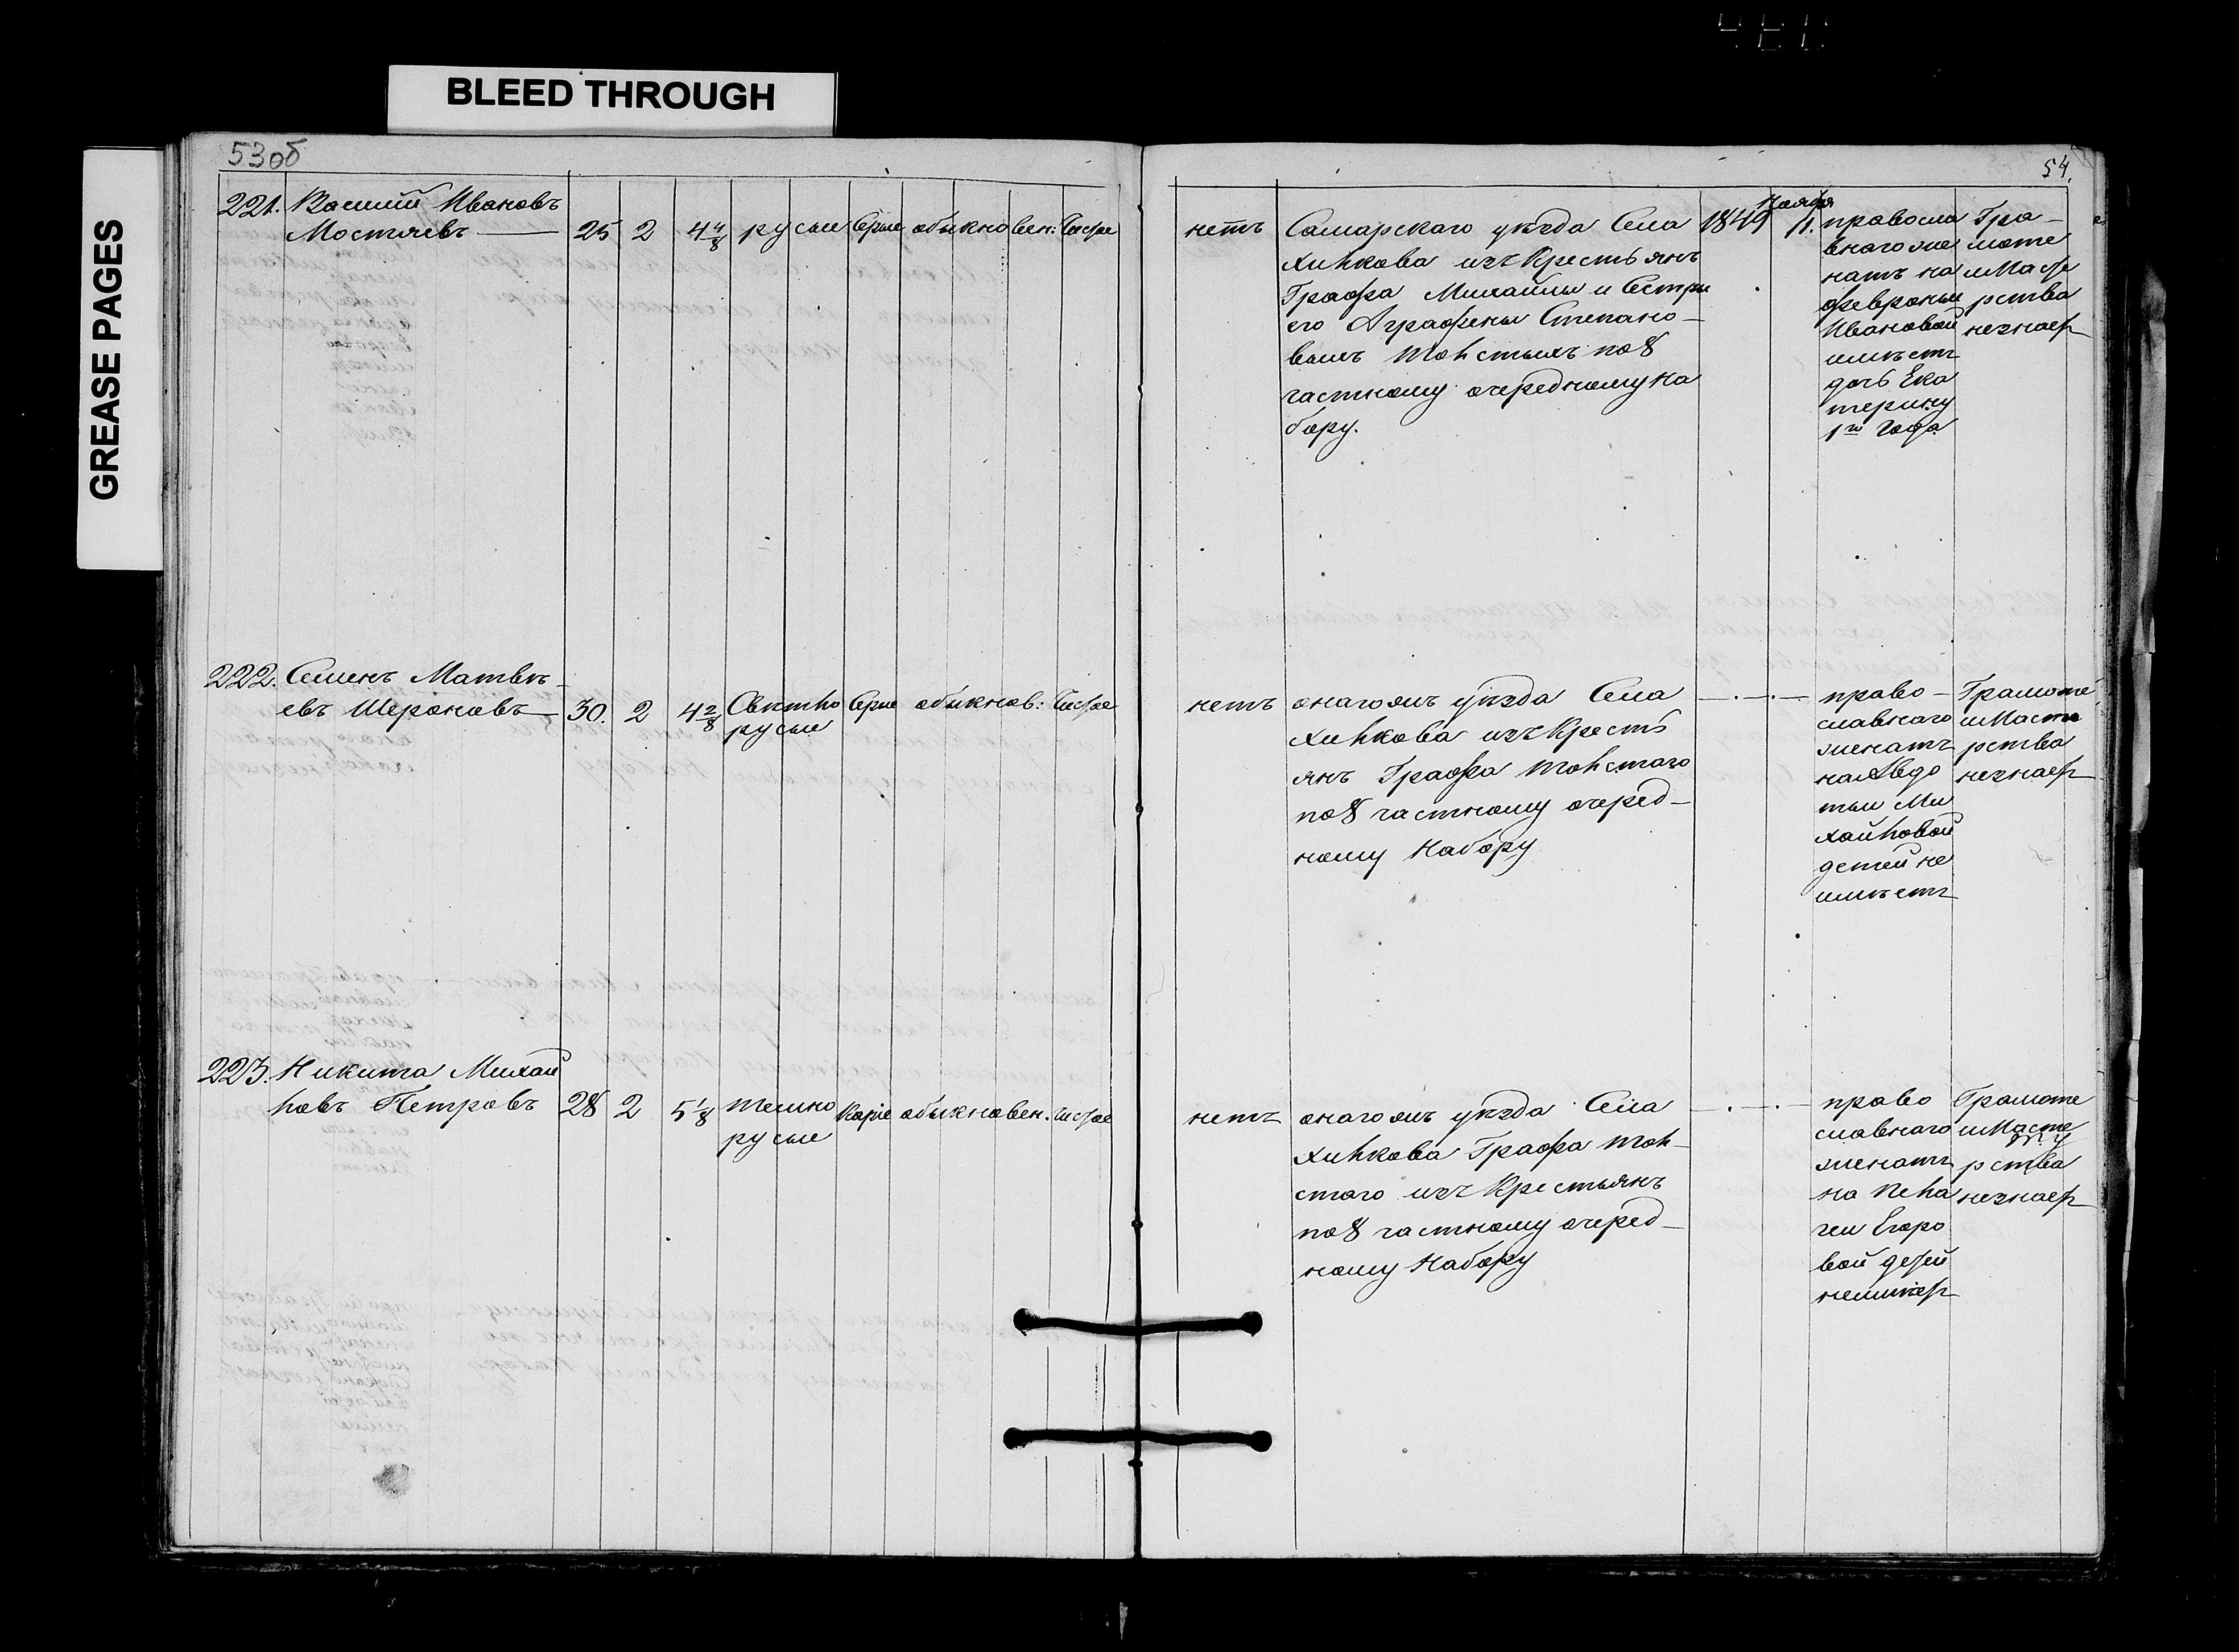 BLEED THROUGH
GREASE PAGES
53об
54.
221. Василий Ивановъ
Мостяевъ — 25 2 4 4/8 русые Серые обыкновен: Чистое
нетъ
Самарскаго уѣзда Села
Хилкова изъ Крестьянъ
Графа Михайлы и Сестры
его Аграфены Степано-
выхъ Толстыхъ по 8
частному очередному на
бору.
1849 Ноября 11.
правосла
внаго же
натъ на
февроньи
Ивановой
имѣетъ
дочь Ека
терину
1го года
Гра-
моте
и Масте
рства
незнает
222. Семенъ Матвѣ-
евъ Шероновъ — 30. 2 4 2/8 Светло Серые обыкнов: Чистое
русые
нетъ
онагожъ уѣзда Села
Хилкова изъ Кресть
янъ Графа Толстаго
по 8 частному очеред-
ному Набору
— . — . —
право-
славнаго
женатъ
на Авдо
тьи Ми
хайловой
детей не
имѣетъ
Грамоте
и Масте
рства
незнает
223. Никита Михай
ловъ Петровъ 28 2 5 1/8 темно Каріе обыкновен. чистое
русые
нетъ
онагожъ уѣзда Села
Хилкова Графа Тол-
стаго изъ Крестьянъ
по 8 частному очеред-
ному Набору
— . — . —
право
славнаго
женатъ
на Пела
геи Егоро
вой детей
неимѣет
Грамоте
и Масте
рства
незнает